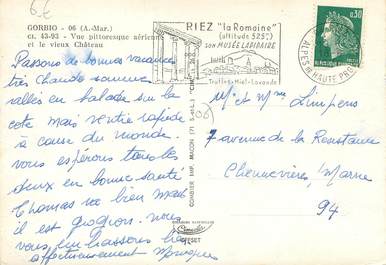 6 €
GORBIO - 06 (A.-Mar.)
ci. 43-93 - Vue pittoresque aérienne
et le vieux Château
RIEZ "la Romaine"
(altitude 525m)
son MUSÉE LAPIDAIRE
Truffes-Miel-Lavande
0,30
ALPES DE HAUTE PROV
Passons de bonnes vacances
très chaude sommes
allés en balade sur la
cote mais rentré rapide
à cause du monde.
vous espérons tous les
deux en bonne santé
Thomas va bien mais
il est grognon. nous
vous embrassons bien
affectueusement Monique
COMBIER IMP. MACON (71 S.-et-L.) "CIM"
COULEURS NATURELLES
Mr et Mme Limpens
7 avenue de la Resistance
Chennevières / Marne
94
(06)